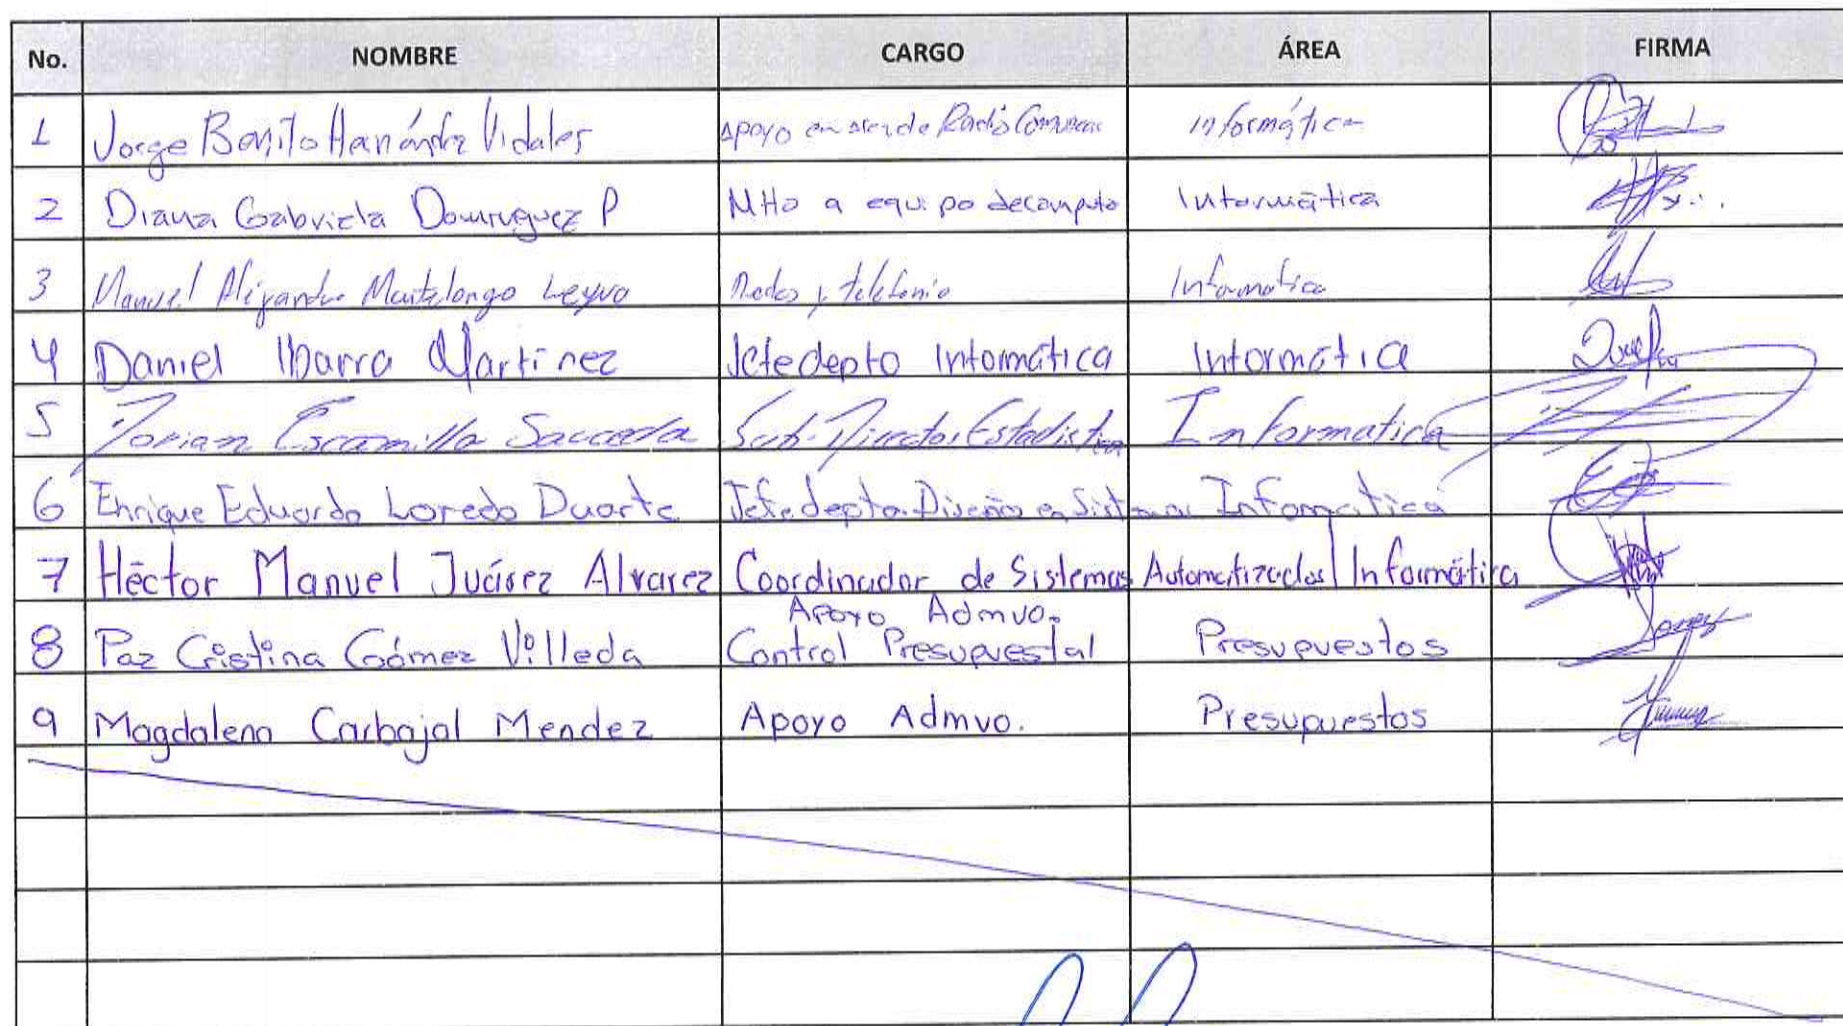 No. NOMBRE CARGO ÁREA FIRMA
1 Jorge Benito Hernández Vidales Apoyo en area de Radio Comunicac Informática
2 Diana Gabriela Dominguez P Mtto a equipo de computo Informática
3 Manuel Alejandro Martelongo Leyva Redes y telefonia Informatica
4 Daniel Ibarra Martinez Jefe depto Informática Informática
5 Dorian Escamilla Sauceda Sub-Director Estadistica Informatica
6 Enrique Eduardo Loredo Duarte Jefe depto. Diseño en Sistemas Informatica
7 Héctor Manuel Juárez Alvarez Coordinador de Sistemas Automatizados Informática
Apoyo Admvo.
8 Paz Cristina Gómez Villeda Control Presupuestal Presupuestos
9 Magdalena Carbajal Mendez Apoyo Admvo. Presupuestos